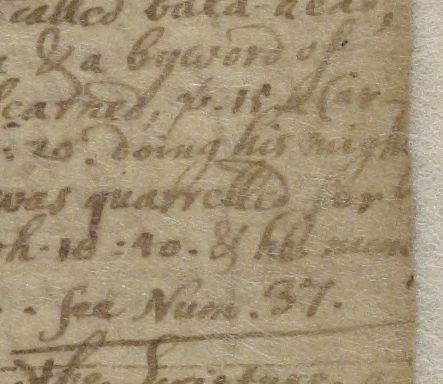 called bald-head,
& a byword of
learned, p. 15. Car-
: 20. doing his might
was quarrelled for
h. 10 : 40. & his
. . see Num. 37.
the